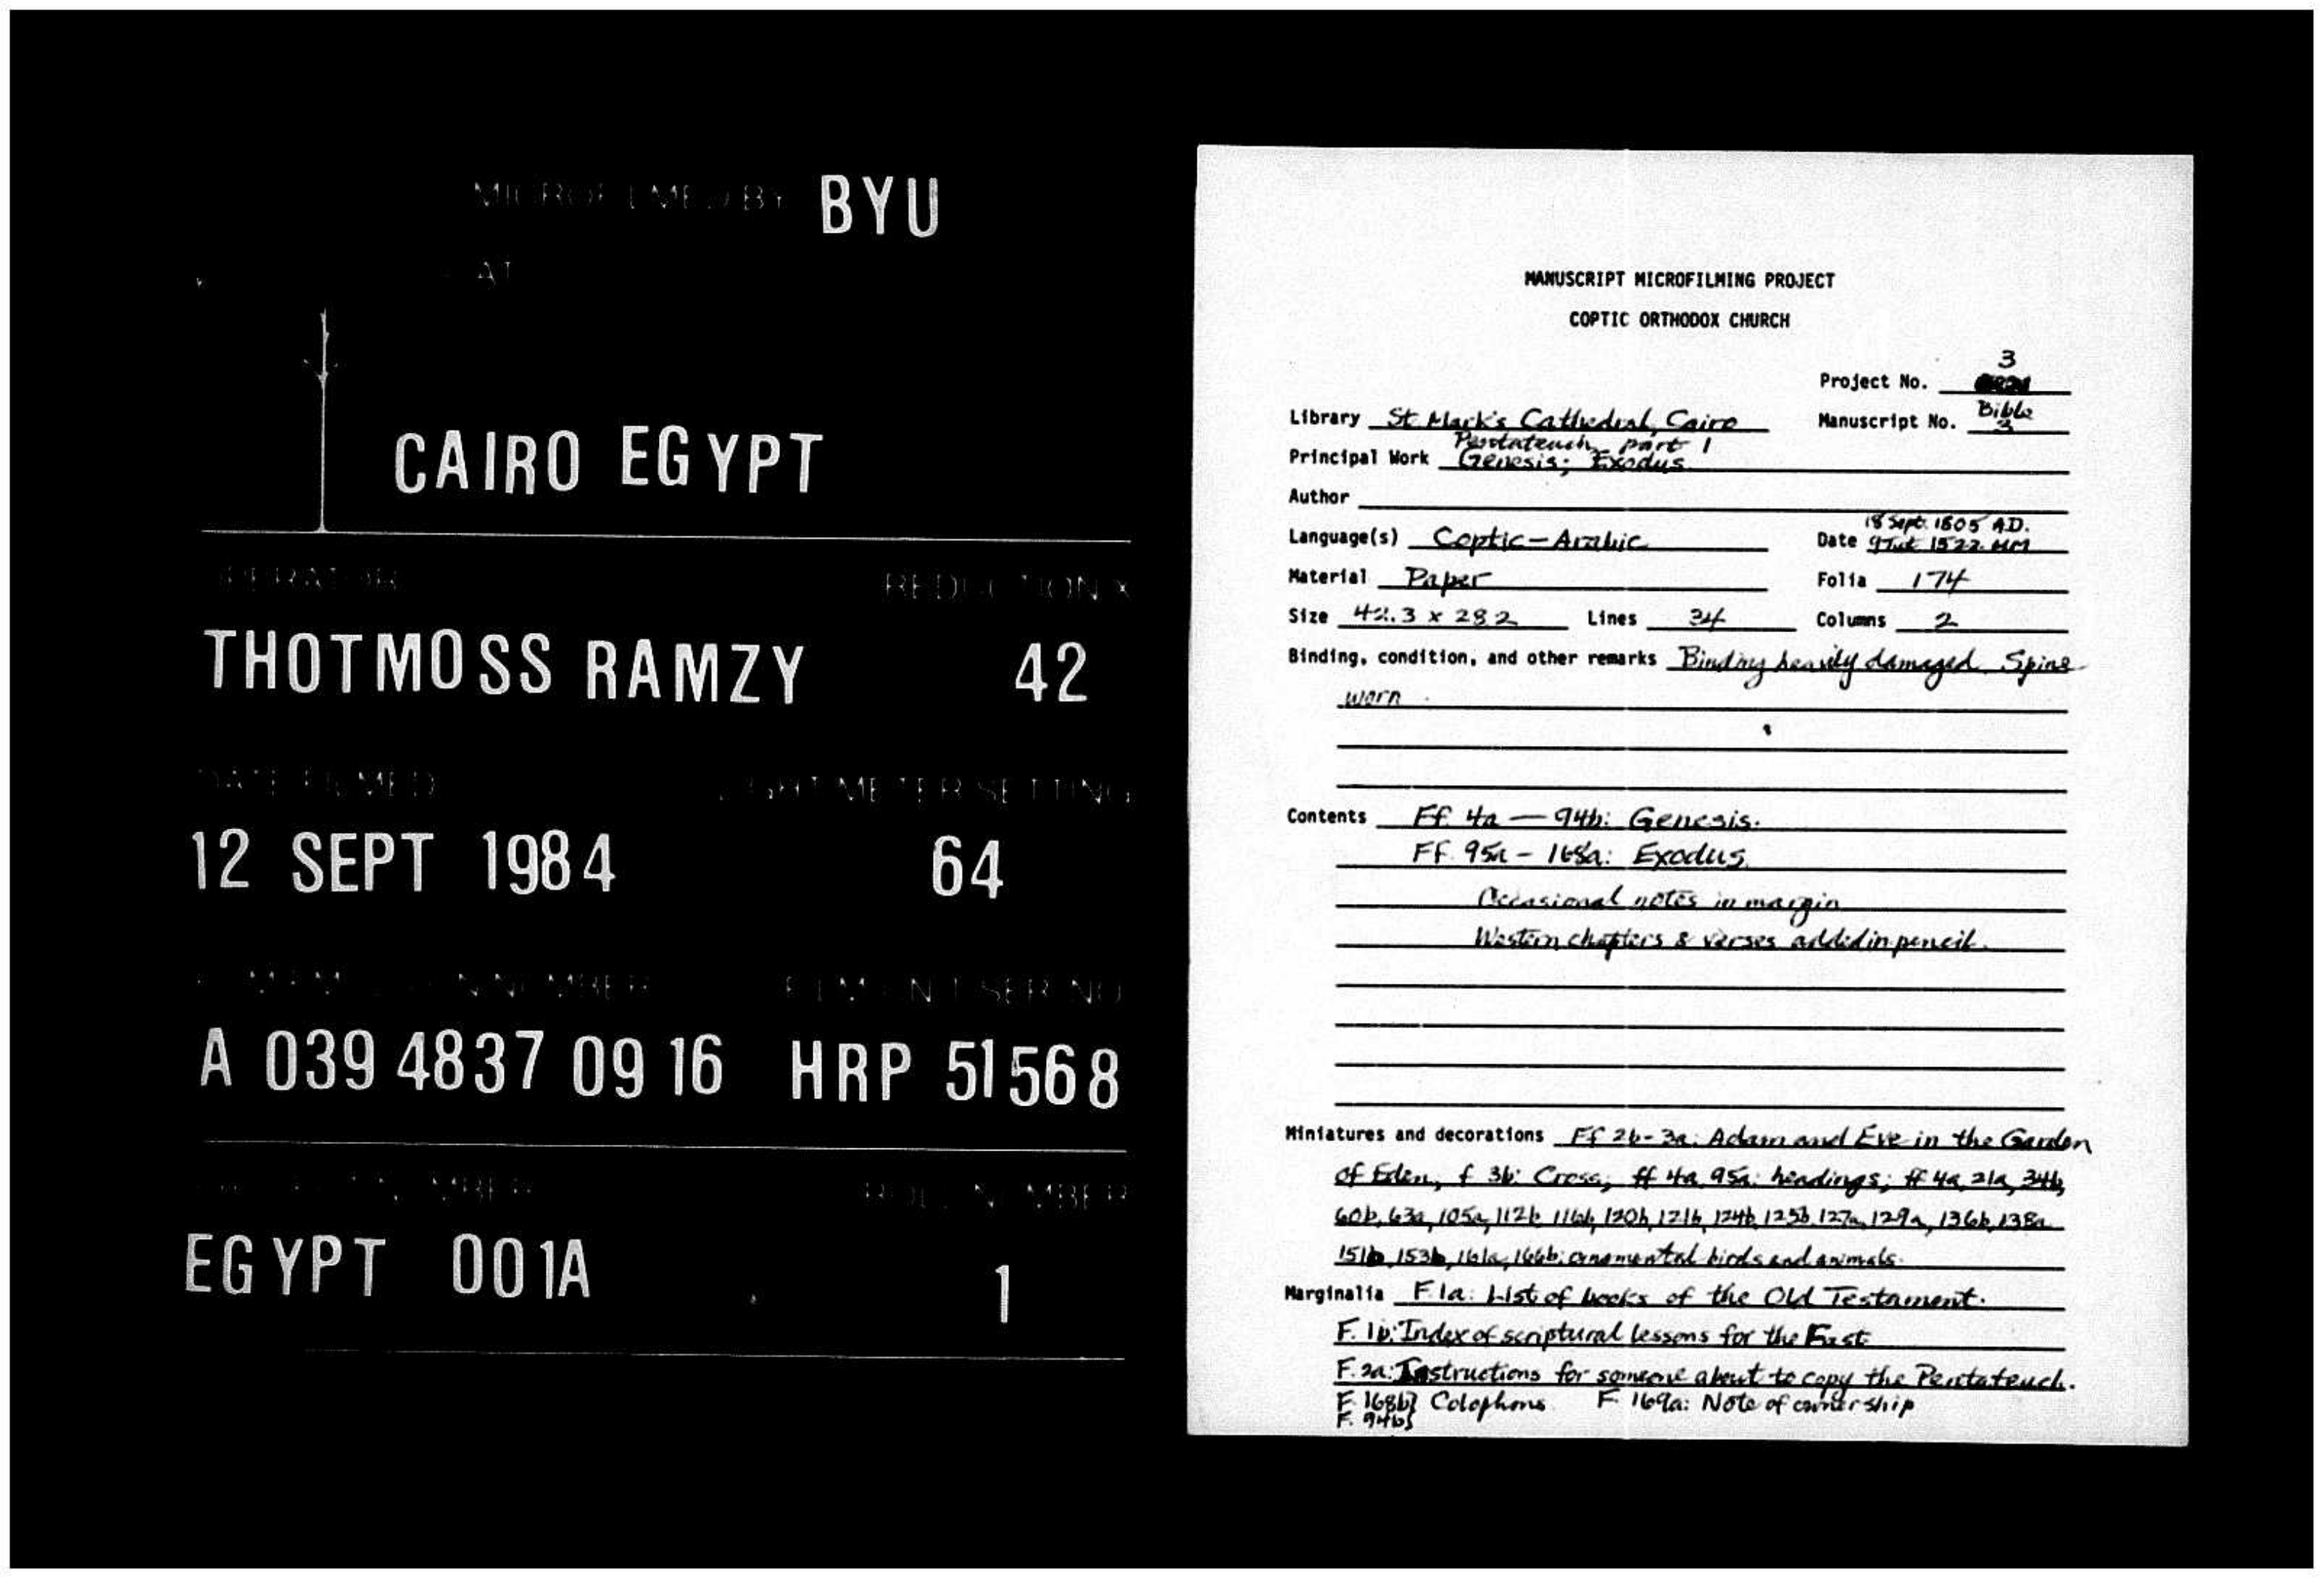 MICROFILMED BY BYU
AT
CAIRO EGYPT
OPERATOR REDUCTION X
THOTMOSS RAMZY 42
DATE FILMED LIGHT METER SETTING
12 SEPT 1984 64
NUMBER FILM UNIT SER NO
A 039 4837 09 16 HRP 51568
NUMBER ROLL NUMBER
EGYPT 001A 1
MANUSCRIPT MICROFILMING PROJECT
COPTIC ORTHODOX CHURCH
3
Project No.
Library St. Mark's Cathedral, Cairo Manuscript No. Bible 3
Pentateuch, part 1
Principal Work Genesis; Exodus
Author
18 Sept. 1805 A.D.
Language(s) Coptic-Arabic Date 9 Tut 1522 AM
Material Paper Folia 174
Size 42.3 x 28.2 Lines 34 Columns 2
Binding, condition, and other remarks Binding heavily damaged. Spine
worn.
Contents Ff. 4a — 94b: Genesis.
Ff. 95a - 168a: Exodus.
Occasional notes in margin
Western chapters & verses added in pencil.
Miniatures and decorations Ff 2b-3a: Adam and Eve in the Garden
of Eden; f 3b: Cross; ff 4a, 95a: headings; ff 4a, 21a, 34b,
60b, 63a, 105a, 112b, 116b, 120b, 121b, 124b, 125b, 127a, 129a, 136b, 138a
151b, 153b, 161a, 166b: ornamental birds and animals.
Marginalia F. 1a: List of books of the Old Testament.
F. 1b: Index of scriptural lessons for the Fast
F. 2a: Instructions for someone about to copy the Pentateuch.
F. 168b} Colophons F. 169a: Note of ownership
F. 94b}